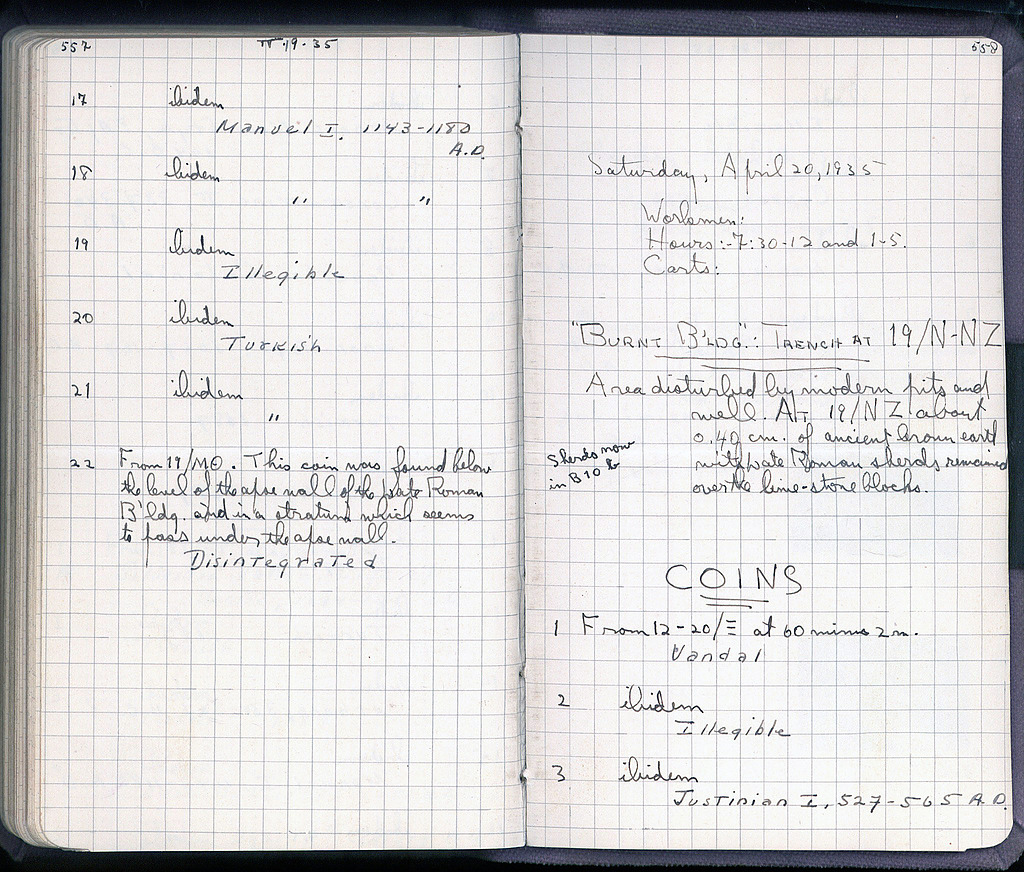 557
IV.19.35
17 ibidem
Manuel I. 1143-1180
A.D.
18 ibidem
" "
19 ibidem
Illegible
20 ibidem
Turkish
21 ibidem
"
22 From 19/MO. This coin was found below
the level of the apse wall of the late Roman
B'ldg. and in a stratum which seems
to pass under the apse wall.
Disintegrated
558
Saturday, April 20, 1935
Workmen:
Hours:-7:30-12 and 1-5.
Carts:
"BURNT B'LDG.": TRENCH AT 19/N-NZ
Area disturbed by modern pits and
well. AT 19/NZ about
0.40 cm. of ancient brown earth
with late Roman sherds remained
over the lime-stone blocks.
Sherds now
in B10
COINS
1 From 12-20/Ξ at 60 minus 2m.
Vandal
2 ibidem
Illegible
3 ibidem
Justinian I, 527-565 A.D.